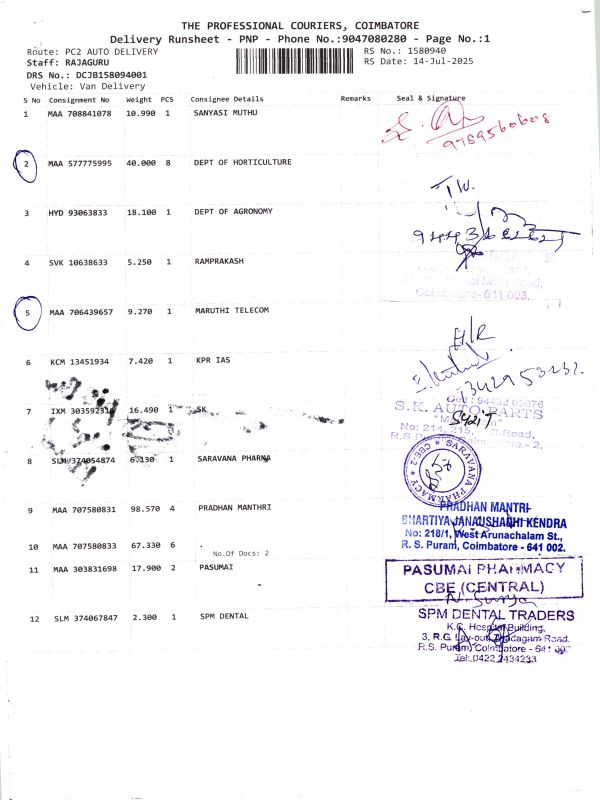 THE PROFESSIONAL COURIERS, COIMBATORE
Delivery Runsheet - PNP - Phone No.:9047080280 - Page No.:1
Route: PC2 AUTO DELIVERY
RS No.: 1580940
Staff: RAJAGURU
RS Date: 14-Jul-2025
DRS No.: DCJB158094001
Vehicle: Van Delivery
S No Consignment No Weight PCS Consignee Details Remarks Seal & Signature
1 MAA 708841078 10.990 1 SANYASI MUTHU
9789560608
2 MAA 577775995 40.000 8 DEPT OF HORTICULTURE
3 HYD 93063833 18.100 1 DEPT OF AGRONOMY
4 SVK 10638633 5.250 1 RAMPRAKASH
Coimbatore- 641 003.
5 MAA 706439657 9.270 1 MARUTHI TELECOM
H/R
6 KCM 13451934 7.420 1 KPR IAS
7 IXM 303592316 16.490 1 SK
S.K. AUTO PARTS
No: 214, 215,
8 SLM 374054874 6.130 1 SARAVANA PHARMA
SARAVANA PHARMACY CBE-2
9 MAA 707580831 98.570 4 PRADHAN MANTHRI
PRADHAN MANTRI
BHARTIYA JANAUSHADHI KENDRA
No: 218/1, West Arunachalam St.,
R. S. Puram, Coimbatore - 641 002.
10 MAA 707580833 67.330 6 .
No.Of Docs: 2
11 MAA 303831698 17.900 2 PASUMAI
PASUMAI PHARMACY
CBE (CENTRAL)
12 SLM 374067847 2.300 1 SPM DENTAL
SPM DENTAL TRADERS
K.G. Hospital Building,
3, R.G. Lay-out, Thadagam Road,
R.S. Puram, Coimbatore - 641 002
Tel: 0422 2434233